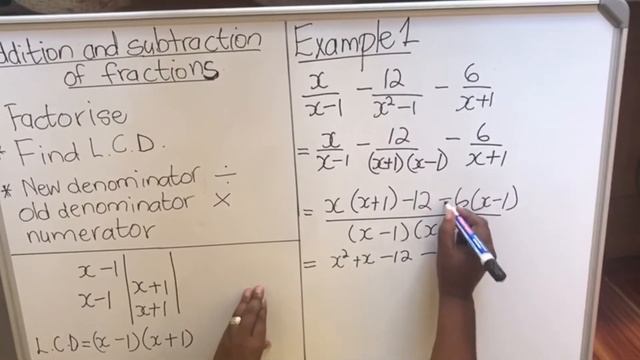 ddition and subtraction
of fractions
Factorise
* Find L.C.D.
* New denominator ÷
old denominator ×
numerator
x-1 |
x-1 | x+1 |
x+1
L.C.D=(x-1)(x+1)
Example 1
x/(x-1) - 12/(x²-1) - 6/(x+1)
= x/(x-1) - 12/((x+1)(x-1)) - 6/(x+1)
= x(x+1)-12-6(x-1)
(x-1)(x
= x²+x-12-